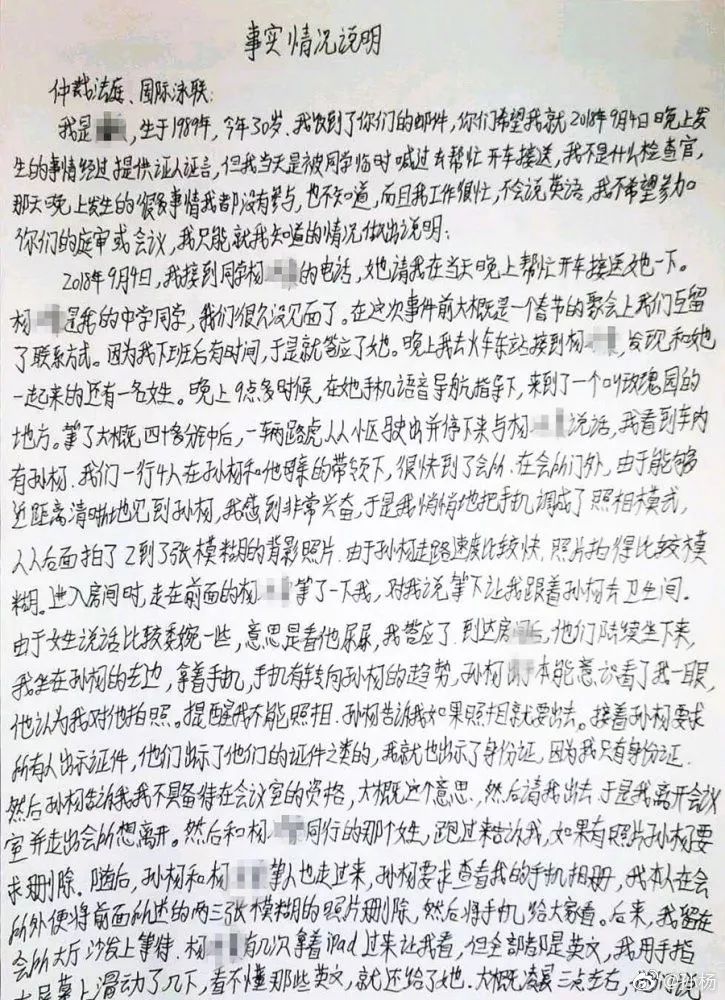 事实情况说明
仲裁法庭、国际泳联：
我是，生于1989年，今年30岁，我收到了你们的邮件，你们希望我就2018年9月4日晚上发
生的事情经过提供证人证言，但我当天是被同学临时喊过去帮忙开车接送，我不是什么检查官，
那天晚上发生的很多事情我都没有参与，也不知道，而且我工作很忙，不会说英语，我不希望参加
你们的庭审或会议，我只能就我知道的情况做出说明：
2018年9月4日，我接到同学杨的电话，她请我在当天晚上帮忙开车接送她一下。
杨是我的中学同学，我们很久没见面了。在这次事件前大概是一个春节的聚会上我们互留
了联系方式。因为我下班后有时间，于是就答应了她。晚上我去火车东站接到杨，发现和她
一起来的还有一名女生。晚上9点多时候，在她手机语音导航指导下，来到了一个叫玫瑰园的
地方。等了大概四十多分钟后，一辆路虎从小区驶出并停下来与杨说话，我看到车内
有孙杨。我们一行4人在孙杨和他母亲的带领下，很快到了会所。在会所门外，由于能够
近距离清晰地见到孙杨，我感到非常兴奋，于是我悄悄地把手机调成了照相模式，
从后面拍了2到了张模糊的背影照片。由于孙杨走路速度比较快，照片拍得比较模
糊。进入房间时，走在前面的杨等了一下我，对我说等下让我跟着孙杨去卫生间。
由于女生说话比较委婉一些，意思是看他尿尿，我答应了。到达房间后，他们陆续坐下来，
我坐在孙杨的左边，拿着手机，手机有转向孙杨的趋势，孙杨本能意识看了我一眼，
他认为我对他拍照。提醒我不能照相。孙杨告诉我如果照相就要出去。接着孙杨要求
所有人出示证件，他们出示了他们的证件之类的，我就也出示了身份证，因为我只有身份证。
然后孙杨告诉我我不具备待在会议室的资格，大概这个意思，然后请我出去。于是我离开会议
室并走出会所想离开。然后和杨同行的那个女生，跑过来告诉我，如果有照片孙杨要
求删除。随后，孙杨和杨等人也走过来，孙杨要求查看我的手机相册，我本人在会
所外便将前面所述的两三张模糊的照片删除，然后将手机给大家看。后来，我留在
会所大厅沙发上等待。杨有几次拿着iPad过来让我看，但全部都是英文，我用手指
在屏幕上滑动了几下，看不懂那些英文，就还给了她。大概凌晨三点左右，
@孙杨